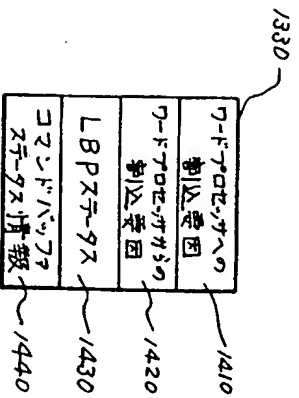 1330
ワードプロセッサへの
割込要因
1410
ワードプロセッサからの
割込要因
1420
LBPステータス
1430
コマンドバッファ
ステータス情報
1440